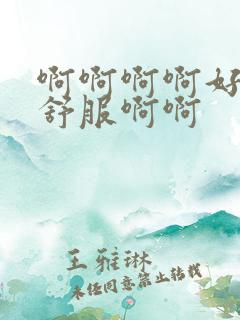 啊啊啊啊好
舒服啊啊
王雅琳
未经同意禁止转载